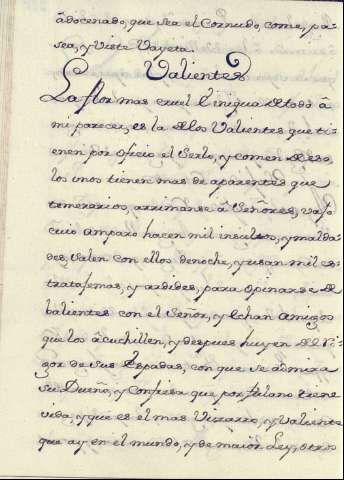 âdocenado, que sea el Cornudo, come, pa-
sea, y Viste Vayeta.
Valientes
La flor mas cruel è iniqua de todas â
mi parecer, es la de los Valientes que ti-
enen por oficio el Serlo, y comen de eso,
los unos tienen mas de aparentes que
temerarios, arrimanse â Señores, vajo
cuio amparo hacen mil insultos, y malda-
des, salen con ellos de noche, y usan mil es-
tratajemas, y ardides, para opinarse de
balientes con el Señor, y echan amigos
que los âcuchillen, y despues huyen del Ri-
gor de sus Espadas, con que se admira
su Dueño, y Confiesa que por fulano tiene
vida, y que es el mas Vizarro, y Valiente
que ay en el mundo, y de maior Ley, otros